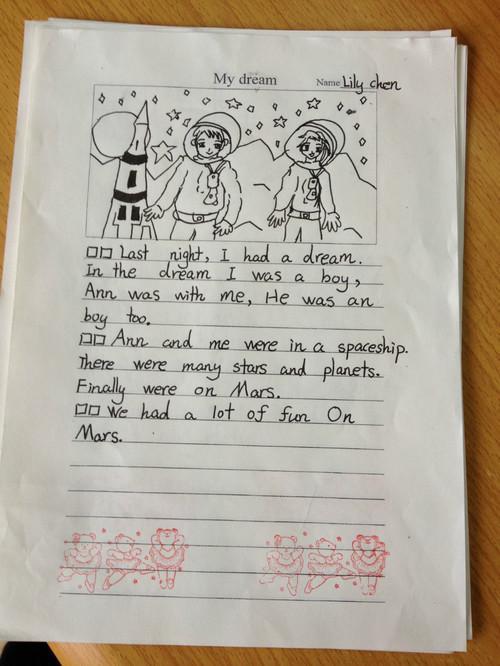 My dream
Name Lily chen
Last night, I had a dream.
In the dream I was a boy,
Ann was with me, He was an
boy too.
Ann and me were in a spaceship.
There were many stars and planets.
Finally were on Mars.
We had a lot of fun On
Mars.